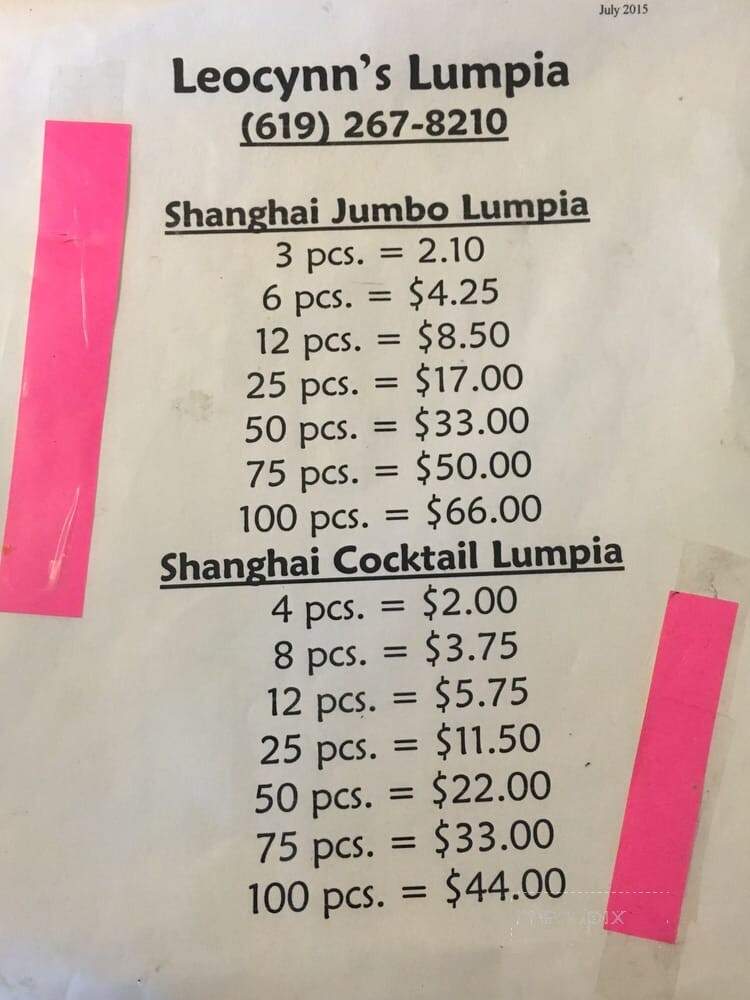 July 2015
Leocynn's Lumpia
(619) 267-8210
Shanghai Jumbo Lumpia
3 pcs. = 2.10
6 pcs. = $4.25
12 pcs. = $8.50
25 pcs. = $17.00
50 pcs. = $33.00
75 pcs. = $50.00
100 pcs. = $66.00
Shanghai Cocktail Lumpia
4 pcs. = $2.00
8 pcs. = $3.75
12 pcs. = $5.75
25 pcs. = $11.50
50 pcs. = $22.00
75 pcs. = $33.00
100 pcs. = $44.00